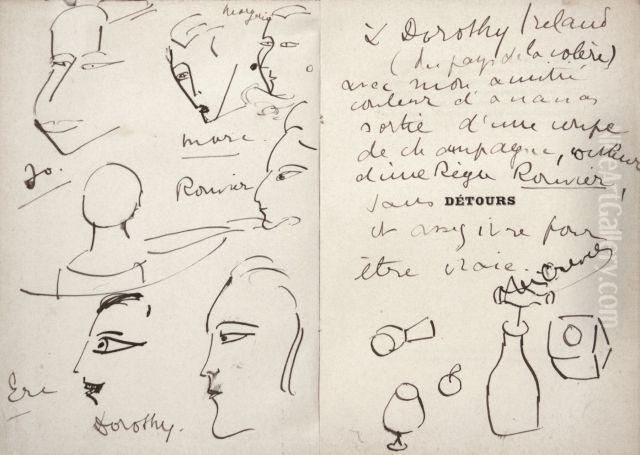 Jo.
marc
Rouvier
Eve
Dorothy.
à Dorothy Ireland
(du pays de la colère)
avec mon amitié
couleur d'ananas
sortie d'une coupe
de champagne, couleur
d'une Règie Rouvier,
sans DÉTOURS
et assez ivre pour
être vraie.
René Crevel